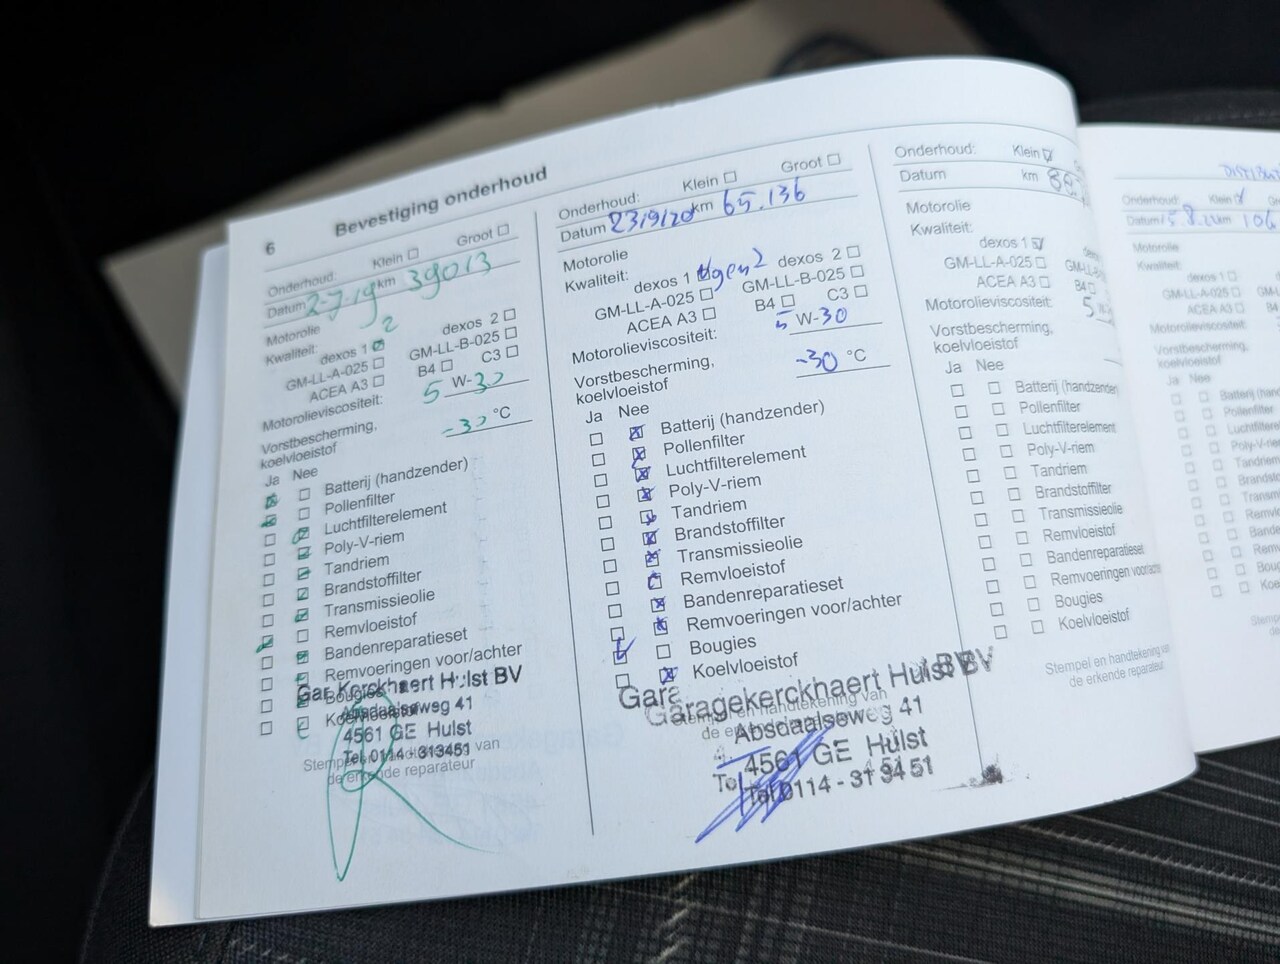 6
Bevestiging onderhoud
Onderhoud: Klein Groot
Datum 2-7-19 km 39013
Motorolie
Kwaliteit: dexos 1 2 dexos 2
GM-LL-A-025 GM-LL-B-025
ACEA A3 B4 C3
Motorolieviscositeit: 5 W-30
Vorstbescherming,
koelvloeistof -30 °C
Ja Nee
Batterij (handzender)
Pollenfilter
Luchtfilterelement
Poly-V-riem
Tandriem
Brandstoffilter
Transmissieolie
Remvloeistof
Bandenreparatieset
Remvoeringen voor/achter
Bougies
Koelvloeistof
Gar. Kerckhaert Hulst BV
Absdaalseweg 41
4561 GE Hulst
Tel. 0114 - 313451
Stempel en handtekening van
de erkende reparateur
Onderhoud: Klein Groot
Datum 23/9/20 km 65.136
Motorolie
Kwaliteit: dexos 1 gen 2 dexos 2
GM-LL-A-025 GM-LL-B-025
ACEA A3 B4 C3
Motorolieviscositeit: 5 W-30
Vorstbescherming,
koelvloeistof -30 °C
Ja Nee
Batterij (handzender)
Pollenfilter
Luchtfilterelement
Poly-V-riem
Tandriem
Brandstoffilter
Transmissieolie
Remvloeistof
Bandenreparatieset
Remvoeringen voor/achter
Bougies
Koelvloeistof
Gara
Garagekerckhaert Hulst BV
Stempel en handtekening van
de erkende reparateur
Absdaalseweg 41
4561 GE Hulst
Tel. 0114 - 31 34 51
Onderhoud: Klein
Datum km
Motorolie
Kwaliteit: dexos 1
GM-LL-A-025
ACEA A3 B4
Motorolieviscositeit: 5
Vorstbescherming,
koelvloeistof
Ja Nee
Batterij (handzender)
Pollenfilter
Luchtfilterelement
Poly-V-riem
Tandriem
Brandstoffilter
Transmissieolie
Remvloeistof
Bandenreparatieset
Remvoeringen voor/achter
Bougies
Koelvloeistof
Stempel en handtekening van
de erkende reparateur
Onderhoud: Klein
Datum km 106
Motorolie
Kwaliteit: dexos 1
GM-LL-A-025
ACEA A3
Motorolieviscositeit:
Vorstbescherming,
koelvloeistof
Ja Nee
Batterij
Pollenfilter
Poly-V-r
Tandriem